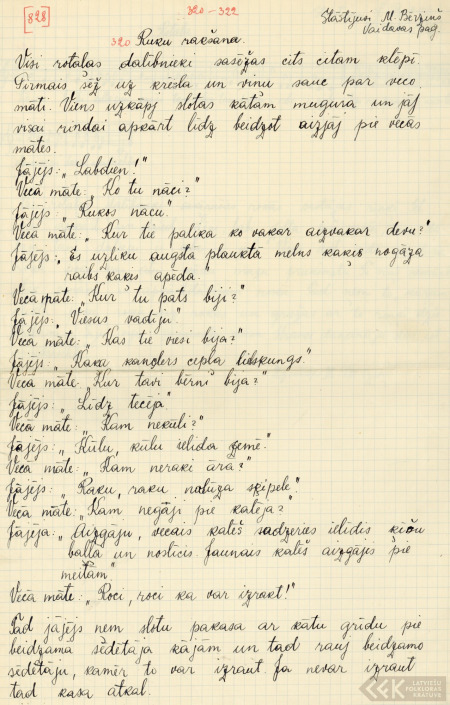 [828]
320 - 322
Stāstījusi M. Bērziņš
Vaidavas pag.
320 Ruku rakšana.
Visi rotaļas dalībnieki sasēžas cits citam klēpī.
Pirmais sēž uz krēsla un viņu sauc par veco
māti. Viens uzkāpj slotas kātam mugurā un jāj
visai rindai apkārt līdz beidzot aizjāj pie vecās
mātes.
Jājējs: „Labdien!"
Vecā māte: „Ko tu nāci?"
Jājējs: „Rukos nācu."
Vecā māte: „Kur tie palika ko vakar aizvakar devu?"
Jājējs: „Es uzliku augstā plauktā melns kaķis nogāza
raibs kaķis apēda."
Vecā māte: „Kur tu pats biji?"
Jājējs: „Viesus vadīju."
Vecā māte: „Kas tie viesi bija?"
Jājējs: „Kaķu kanglers cepla lielskungs."
Vecā māte: „Kur tavi bērni bija?"
Jājējs: „Līdz tecēja"
Vecā māte: „Kam nekūli?"
Jājējs: „Kūlu, kūlu ielīda zemē."
Vecā māte: „Kam neraki ārā?"
Jājējs: „Raku, raku nolūza šķipele".
Vecā māte: „Kam negāji pie kalēja?"
Jājējs: „Aizgāju, vecais kalējs sadzēries ielīdis
ballā un nosticis jaunais kalējs aizgājis pie
meitām"
Vecā māte: „Roci, roci ka var izrakt!"
Tad jājējs ņem slotu pakasa ar kātu grīdu pie
beidzamā sēdētāja kājām un tad rauj beidzamo
sēdētāju, kamēr to var izraut. Ja nevar izraut
tad kasa atkal.
LATVIEŠU
FOLKLORAS
KRĀTUVE